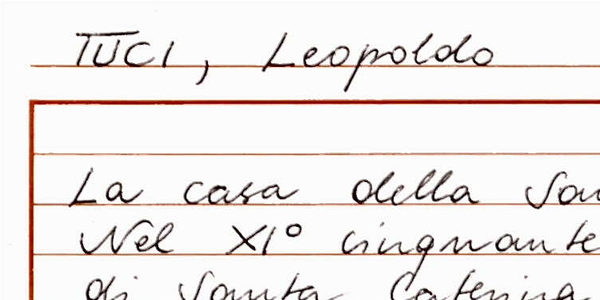 TUCI, Leopoldo
La casa della San
Nel XI° cinquante
di Santa Caterina